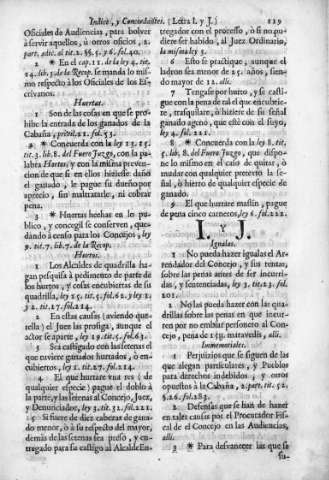 Indice, y Concordantes. (Letra I. y J.) 129
Oficiales de Audiencias, para bolver
à servir aquellos, ù otros oficios, 2.
part. adic. al tit. 2. §§. 5. y 6. fol. 40.
2 * En el cap. 11. de la ley 4. tit.
14. lib. 3. de la Recop. se manda lo mis-
mo respecto à los Oficiales de los Es-
crivanos.
Huertas.
1 Son de las cosas en que se pro-
hibe la entrada de los ganados de la
Cabaña, privil. 21. fol. 53.
2 * Concuerda con la ley 13. 15.
tit. 3. lib. 8. del Fuero Juzgo, con la pa-
labra Huertas; y con la misma preven-
cion de que si en ellos hiziesse daño
el ganado, le pague su dueño por
aprecio, sin maltratarle, ni cobrar
pena.
3 * Huertas hechas en lo pu-
blico, y concegil se conserven, que-
dando à censo para los Concejos, ley
9. tit. 7. lib. 7. de la Recop.
Hurtos.
1 Los Alcaldes de quadrilla ha-
gan pesquisa à pedimento de parte de
los hurtos, y cosas encubiertas de su
quadrilla, ley 25. tit. 5. fol. 62. y ley 31
y 32. tit. 17. fol. 214.
2 En estas causas (aviendo que-
rella) el Juez las prosiga, aunque el
actor se aparte, ley 19. tit. 5. fol. 63.
3 Sea castigado con las setenas el
que tuviere ganados hurtados, ò en-
cubiertos, ley 1. tit. 17. fol. 214.
4 El que hurtare una res (de
qualquier especie) pague el doblo à
la parte, y las setenas al Concejo, Juez,
y Denunciador, ley 3. tit. 32. fol. 221.
5 Si fuere de diez cabezas de gana-
do menor, ò à su respecto del mayor,
demàs de las setenas sea preso, y en-
tregado para su castigo al Alcalde En-
tregador con el processo, ò si no pu-
diere ser habido, al Juez Ordinario,
la misma ley 3.
6 Esto se practique, aunque el
ladron sea menor de 25. años, sien-
do mayor de 12. alli.
7 Tengase por hurto, y se casti-
gue con la pena de tal el que encubrie-
re, trasquilare, ò hiziere de su señal
ganado alguno, que estè con el suyo,
ley 4. fol. 221.
8 * Concuerda con la ley 8. tit.
5. lib. 8. del Fuero Juzgo, que dispo-
ne lo mismo en el caso de quitar, ò
mudar con qualquier pretexto la se-
ñal, ò hierro de qualquier especie de
ganado.
9 El que hurtare mastin, pague
de pena cinco carneros, ley 6. fol. 222.
I. y J.
Igualas.
1 No pueda hazer igualas el Ar-
rendador del Concejo, y sus rentas,
sobre las penas antes de ser incurri-
das, y sentenciadas, ley 3. tit. 23. fol.
203.
2 No las pueda hazer con las qua-
drillas sobre las penas en que incur-
ren por no embiar personero al Con-
cejo, pena de 15. maravedis, alli.
Immemoriales.
1 Perjuizios que se siguen de las
que alegan particulares, y Pueblos
para derechos indebidos, y otros
opuestos à la Cabaña, 2. part. tit. 52.
§. 26. fol. 283.
2 Defensas que se han de hazer
en tales causas por el Procurador Fis-
cal de el Concejo en las Audiencias,
alli.
3 * Para desvanecer las que se
fu-